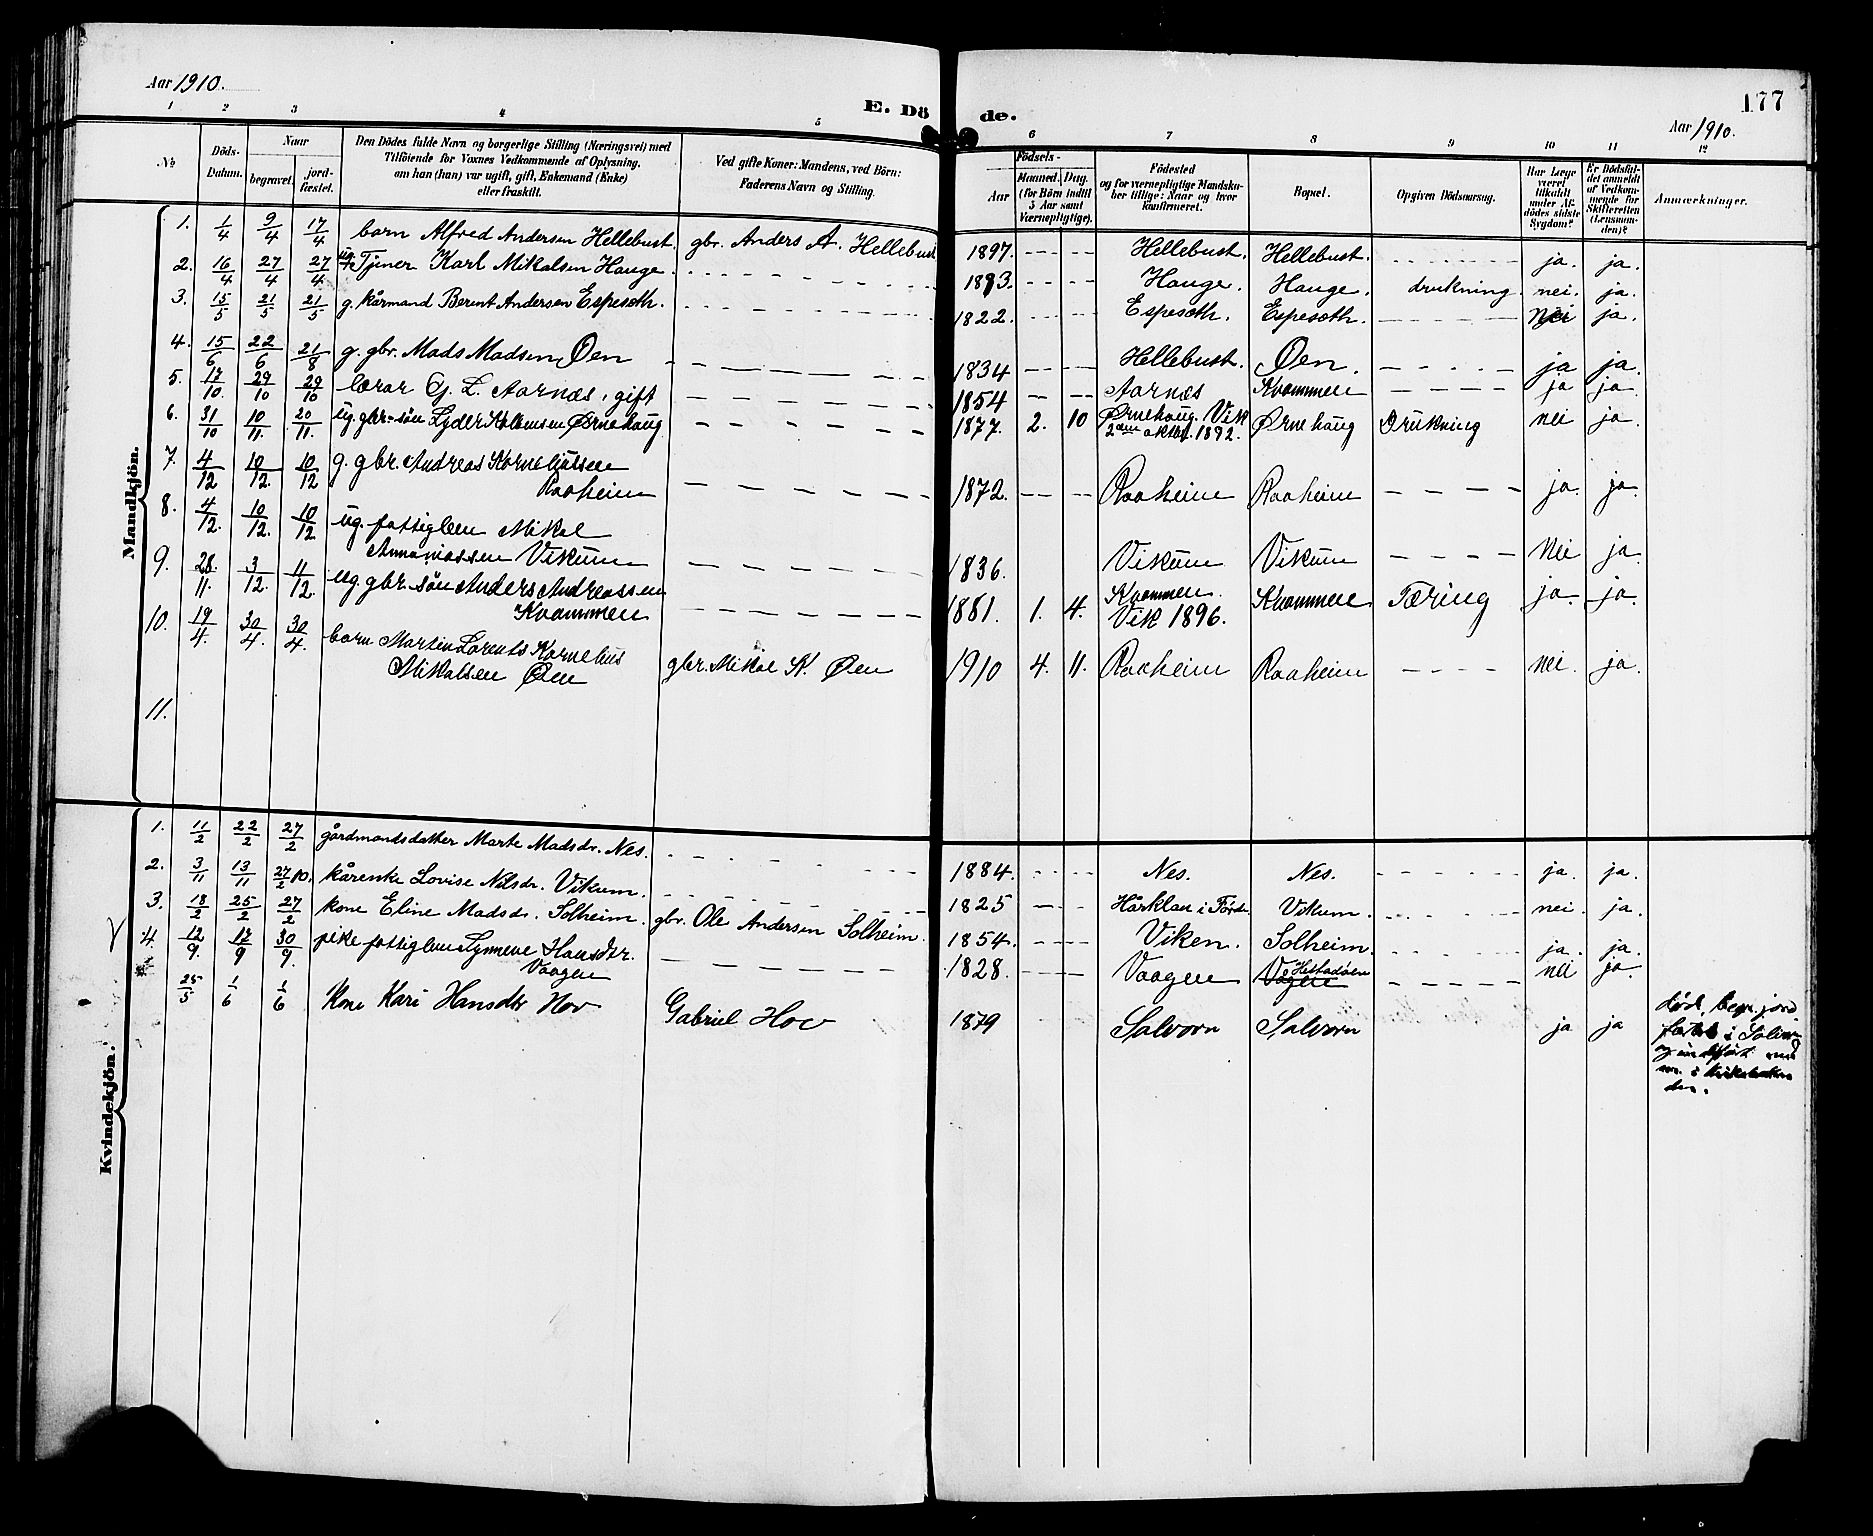 Aar 1910.
E. Dö de.
177
Aar 1910.
1 2 3 4 5 6 7 8 9 10 11 12
№
Döds-
Datum.
Naar
begravet.
jord-
fæstet.
Den Dödes fulde Navn og borgerlige Stilling (Næringsvei) med
Tilföiende for Voxnes Vedkommende af Oplysning,
om han (hun) var ugift, gift, Enkemand (Enke)
eller fraskilt.
Ved gifte Koner: Mandens, ved Börn:
Faderens Navn og Stilling.
Födsels-
Aar
Maaned. Dag.
(for Börn indtil
5 Aar samt
Værnepligtige).
Födested
og for værnepligtige Mandska-
ber tillige: Naar og hvor
konfirmeret.
Bopæl.
Opgiven Dödsaarsag.
Har Læge
været
tilkaldt
under Af-
dödes sidste
Sygdom?
Er Dödsfal-
det anmeldt
af Vedkom-
mende for
Skifteretten
(Lensman-
den)?
Anmærkninger.
Mandkjön.
1. 1/4 9/4 17/4 barn Alfred Andersen Hellebust. gbr. Anders A. Hellebust 1897. Hellebust. Hellebust. ja. ja.
2. 16/4 27/4 27/4 ug. Tjener Karl Mikalsen Hauge. 1893. Hauge. Hauge. drukning. nei. ja.
3. 15/5 21/5 21/5 g. kårmand Berent Andersen Espeseth. 1822. Espeseth. Espeseth. nei ja.
4. 15/6 22/6 21/8 g. gbr. Mads Madsen Øen 1834 Hellebust. Øen. ja ja.
5. 17/10. 29/10 29/10 lærar G. L. Aarnæs, gift 1854 Aarnæs Kvammen ja ja.
6. 31/10 10/11. 20/11. ug. gbr. søn Lyder Ørnehaug 1877. 2. 10 Ørnehaug. Vik
2den oktbr. 1892. Ørnehaug Drukning nei ja.
7. 4/12 10/12. 10/12 g. gbr. Andreas Korneliussen
Raaheim 1872. Raaheim Raaheim ja. ja.
8. 4/12. 10/12. 10/12 ug. fattiglem Mikal
Annaniassen Vikum 1836. Vikum Vikum Nei ja
9. 28/11. 3/12. 11/12. ug. gbr. søn Anders Andreassen
Kvammen 1881. 1. 4. Kvammen.
Vik 1896. Kvammen Tæring ja. ja.
10. 19/4. 30/4. 30/4. barn Martin Lorents Kornelius
Mikalsen Øen gbr. Mikal K. Øen 1910 4. 11. Raaheim Raaheim nei. ja.
11.
Kvindekjön.
1. 11/2 22/2 27/2 gårdmandsdatter Marte Madsdr. Nes. 1884. Nes. Nes. ja. ja.
2. 3/11 13/11 27/2 10. kårenke Lovise Nilsdr. Vikum. 1825 Hårklau i Førde. Vikum. nei. ja.
3. 18/2 25/2 27/2 kone Eline Madsdr. Solheim. gbr. Ole Andersen Solheim. 1854. Viken. Solheim. ja. ja.
4. 12/9. 17/9 30/9. pike fattiglem Synneve Hansdtr.
Vaagen 1828. Vaagen Vågene Hestadøen nei ja.
25/5 1/6 1/6 Kone Kari Hansdtr Hov Gabriel Hov 1879 Salvorn Salvorn ja ja
død, begr. jord
fæstet i
og indført
i
den.